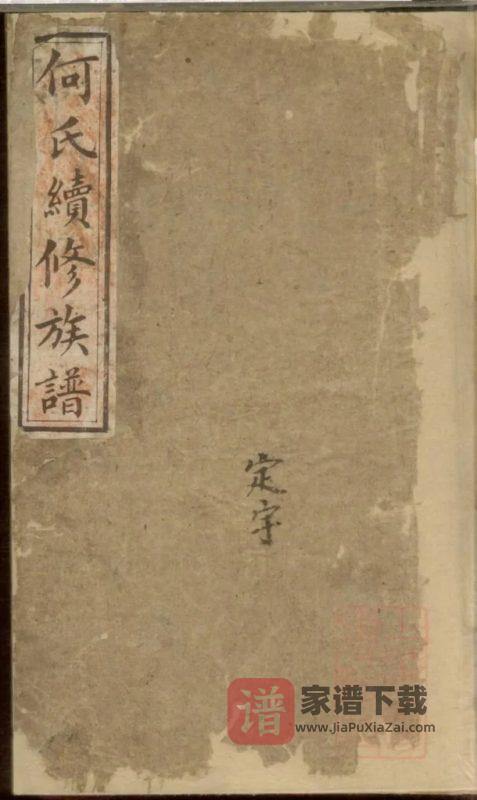 何氏續修族譜
定字
谱 家谱下载
www.JiaPuXiaZai.com